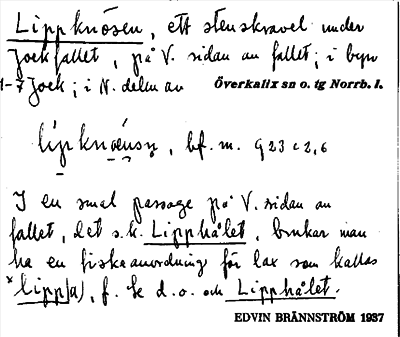 Lippknösen, ett stenskravel under
Jockfallet, på V. sidan av fallet; i byn
1-7 Jock; i N. delen av Överkalix sn o. tg Norrb. l.
, bf. m. 9 23 c 2,6
I en smal passage på V. sidan av
fallet, det s.k. Lipphålet, brukar man
ha en fiskeanordning för lax som kallas
*lipp(a), f. Se d.o. och Lipphålet.
EDVIN BRÄNNSTRÖM 1937